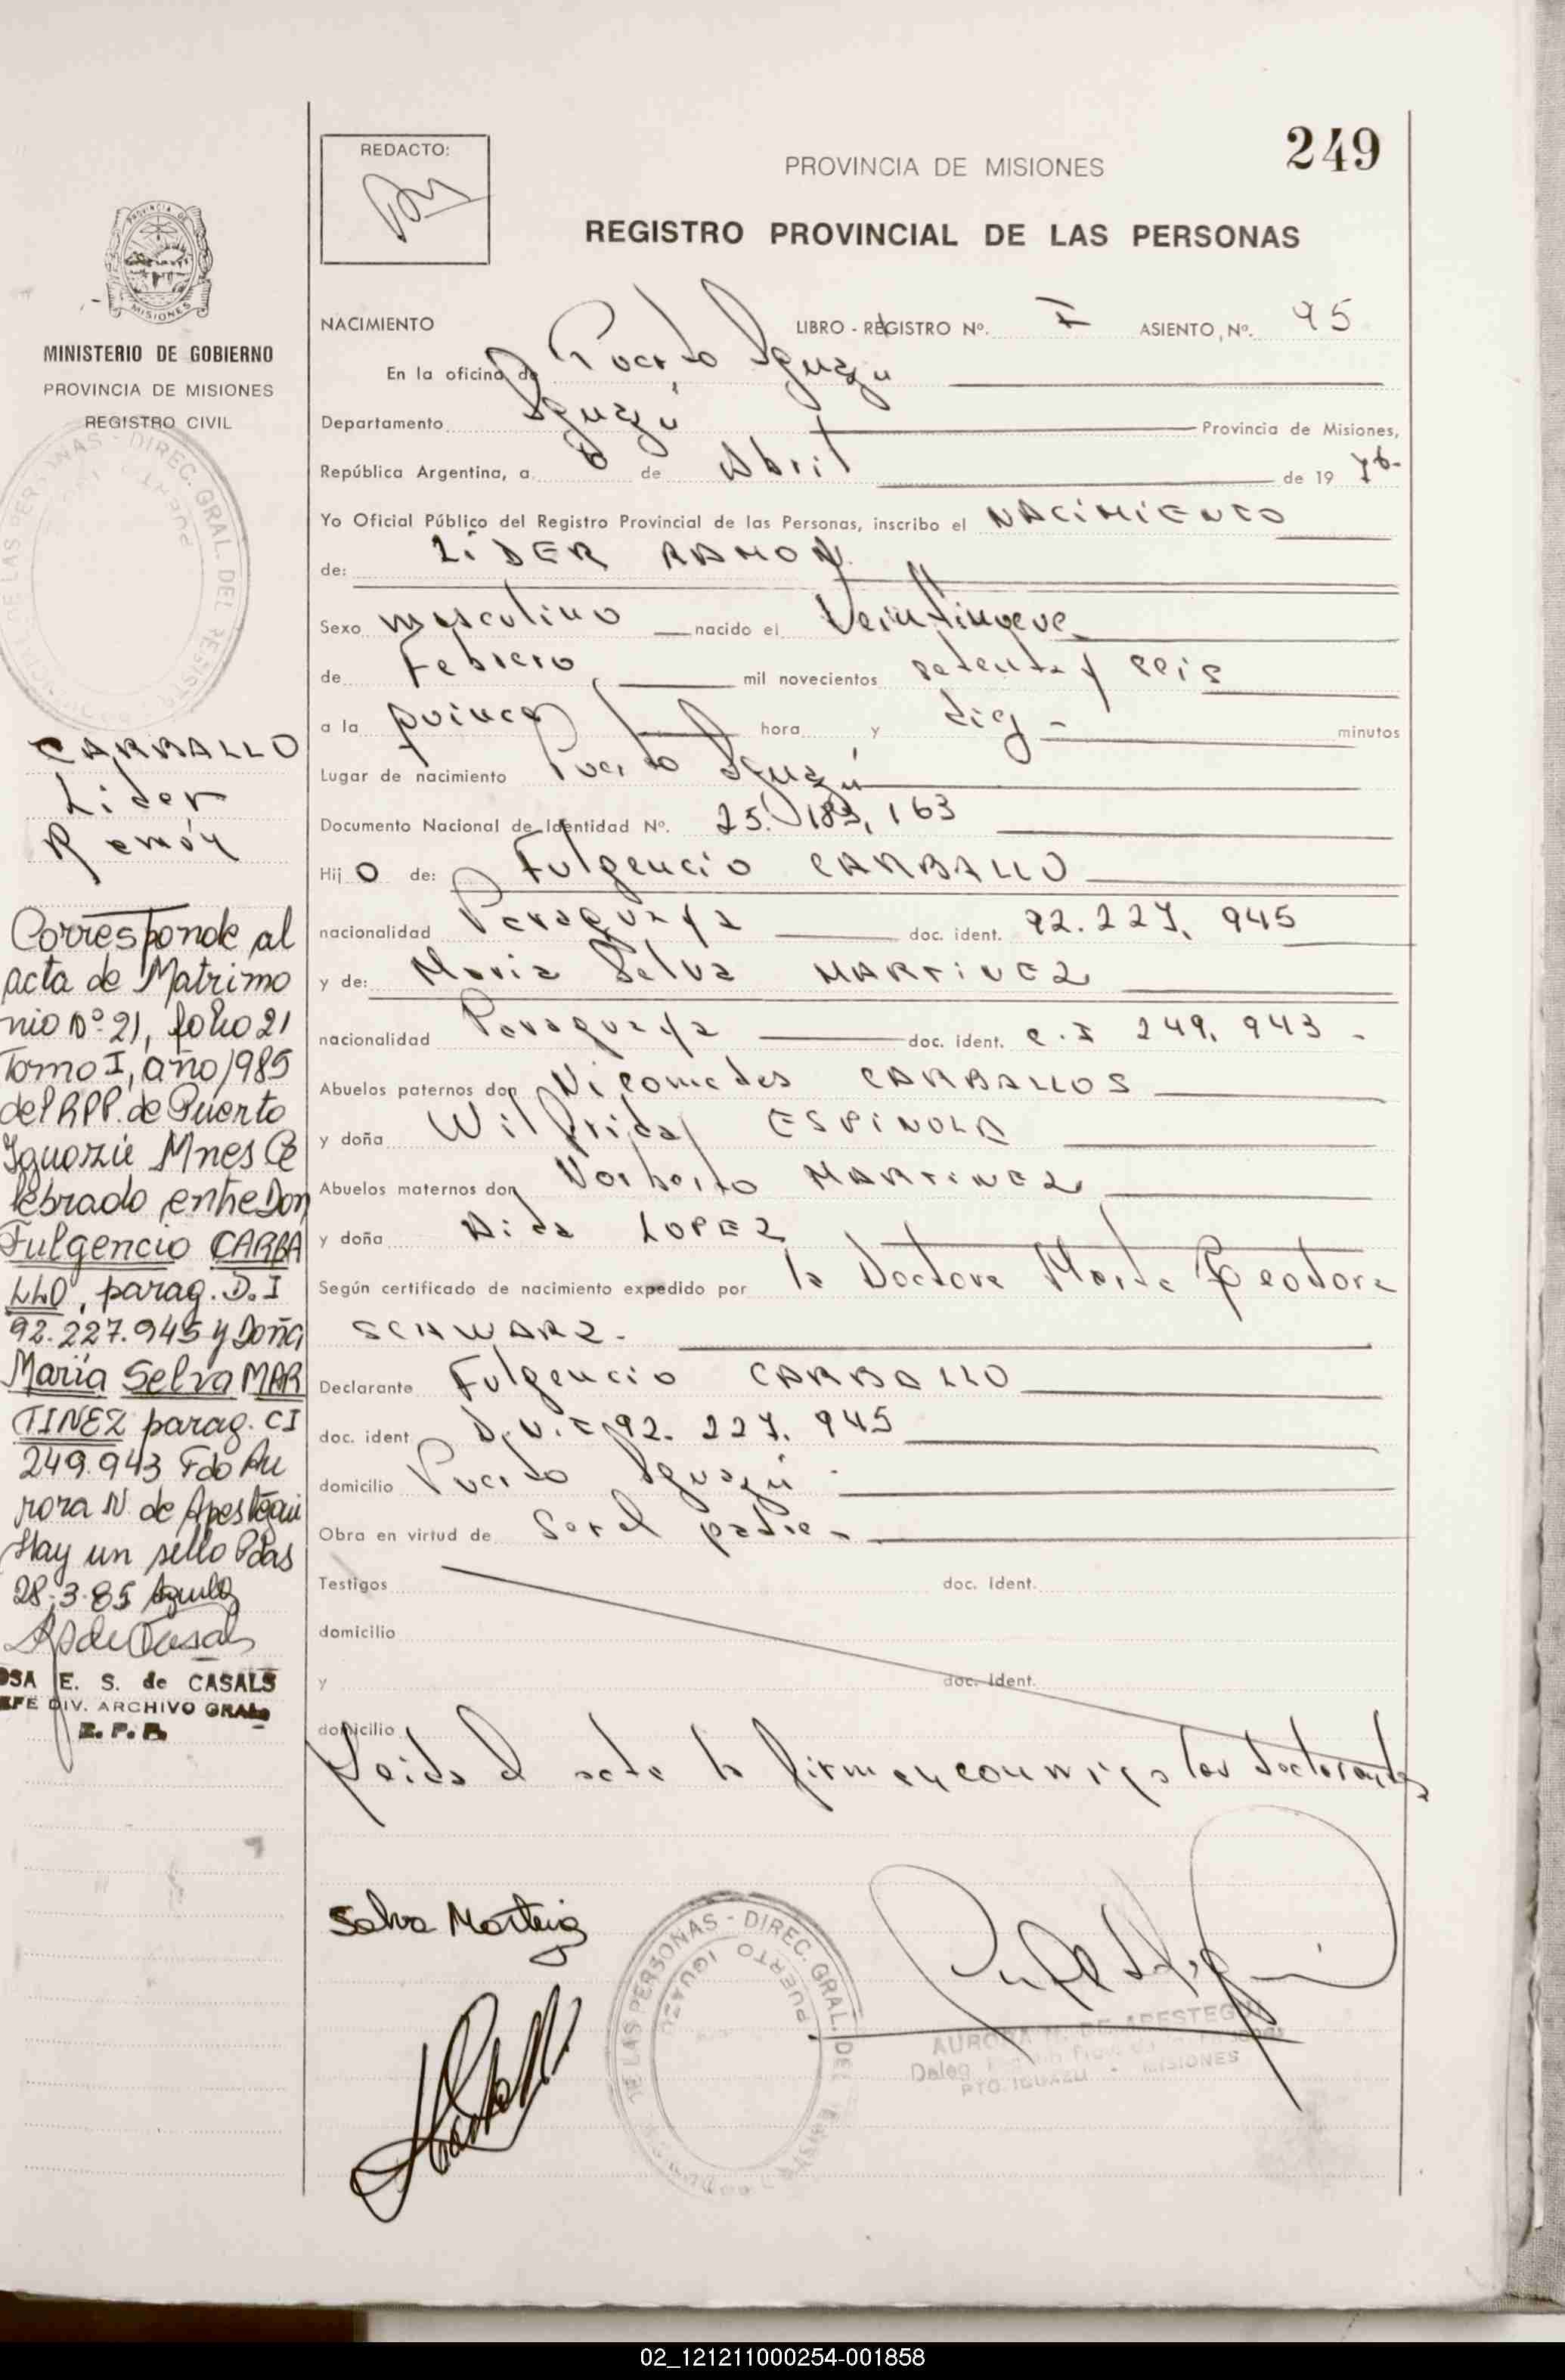 249
REDACTO:
PROVINCIA DE MISIONES
REGISTRO PROVINCIAL DE LAS PERSONAS
NACIMIENTO LIBRO - REGISTRO Nº. I ASIENTO, Nº. 95
En la oficina de Puerto Iguazú
Departamento Iguazú Provincia de Misiones,
República Argentina, a 6 de Abril de 19 76-
Yo Oficial Público del Registro Provincial de las Personas, inscribo el NACIMIENTO
de: LIDER RAMON
Sexo masculino nacido el Veintinueve
de Febrero mil novecientos setenta y seis
a la quince hora y diez - minutos
Lugar de nacimiento Puerto Iguazú
Documento Nacional de Identidad Nº. 25.183,163
Hij O de: Fulgencio CARBALLO
nacionalidad Paraguaya doc. ident. 92.227.945
y de: Maria Selva MARTINEZ
nacionalidad Paraguaya doc. ident. C.I 249.943 -
Abuelos paternos don Nicomedes CARBALLOS
y doña Wilfrida ESPINOLA
Abuelos maternos don Norberto MARTINEZ
y doña Aida LOPEZ
Según certificado de nacimiento expedido por la Doctora Marta Teodora
SCHWARZ-
Declarante Fulgencio CARBALLO
doc. ident D.N.I 92.227.945
domicilio Puerto Iguazú
Obra en virtud de Ser el padre -
Testigos doc. Ident.
domicilio
y doc. Ident.
domicilio
Leida el acta la firman conmigo los declarantes
Selva Martinez
DE LAS PERSONAS - DIREC. GRAL. DEL
PUERTO IGUAZU
AURORA N. DE APESTEGUI
Deleg.
PTO. IGUAZU - MISIONES
PROVINCIA DE
MISIONES
MINISTERIO DE GOBIERNO
PROVINCIA DE MISIONES
REGISTRO CIVIL
DE LAS PERSONAS - DIREC. GRAL. DEL REGISTR
CARBALLO
Lider
Ramón
Corresponde al
acta de Matrimo
nio Nº 21, folio 21
Tomo I, año 1985
del RPP. de Puerto
Iguazú Mnes Ce
lebrado entre Don
Fulgencio CARBA
LLO, parag. D.I
92.227.945 y Doña
María Selva MAR
TINEZ parag. CI
249.943 Fdo Au
rora N. de Apestegui
Hay un sello Pdas
28-3-85
OSA E. S. de CASALS
EFE DIV. ARCHIVO GRAL
R. P. P.
02_121211000254-001858